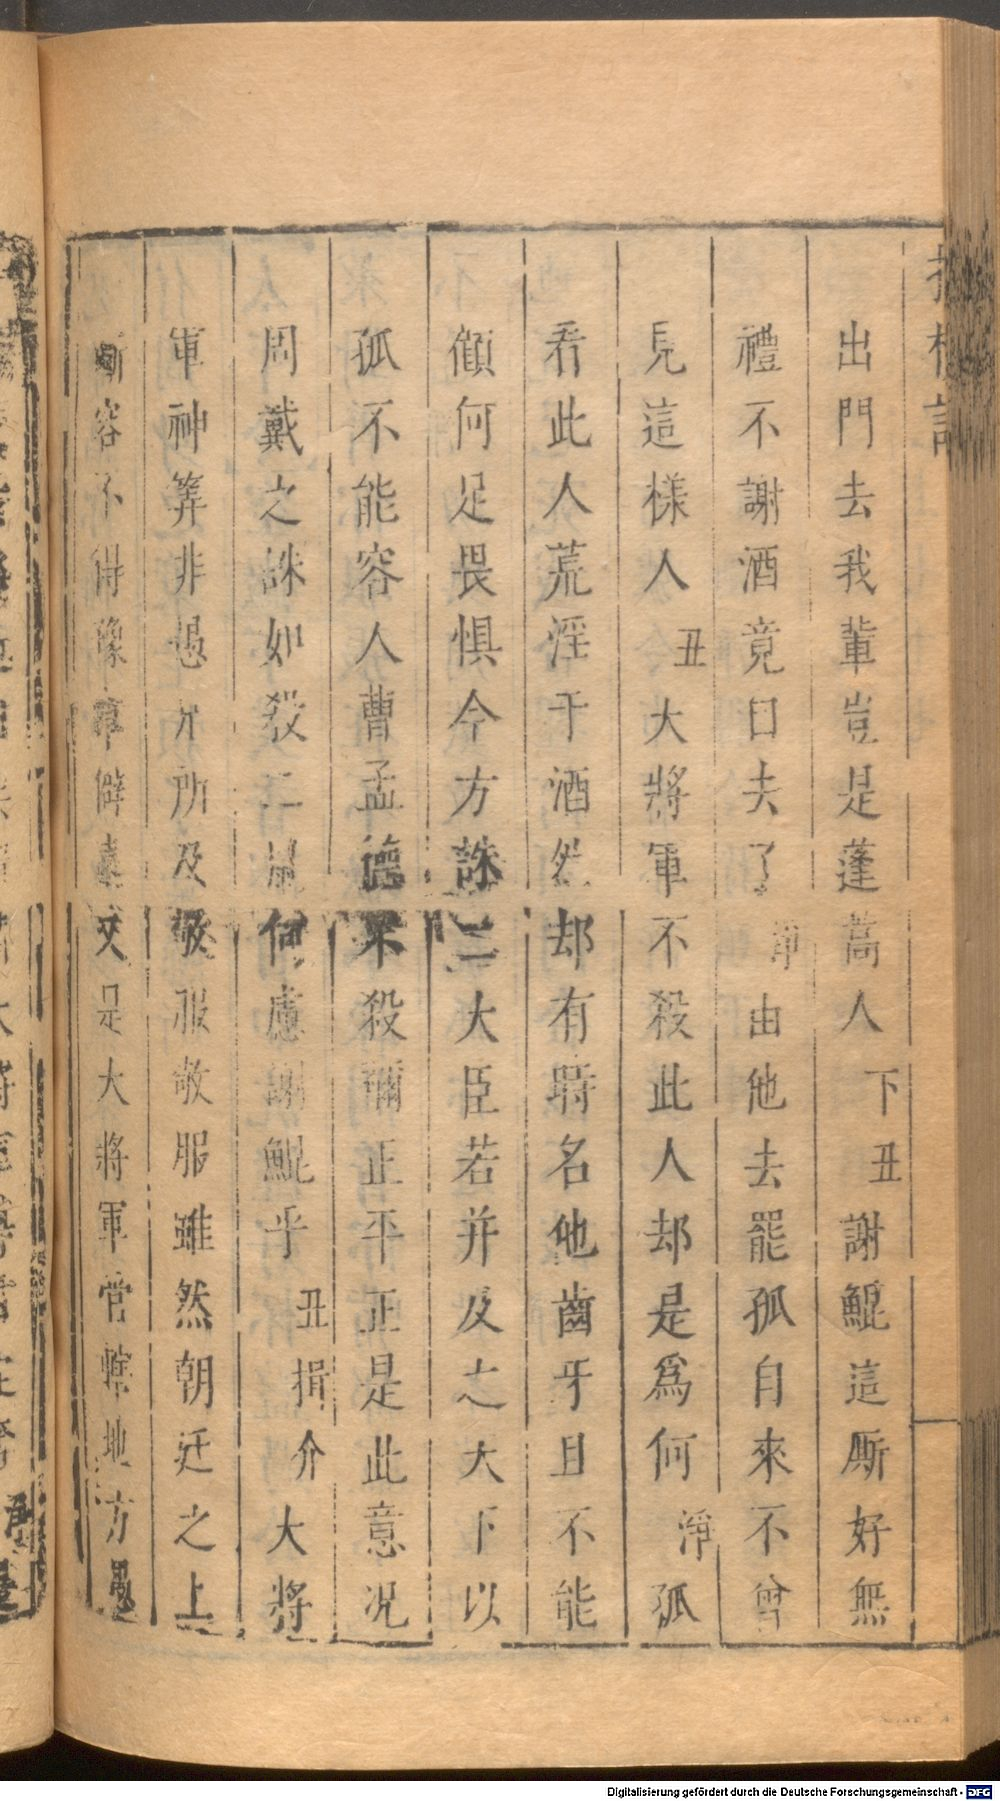 出門去我輩豈是蓬蒿人下丑謝鯤這厮好無
禮不謝酒竟日去了淨由他去罷孤自來不曾
見這樣人丑大將軍不殺此人却是爲何淨孤
看此人荒淫于酒然却有時名他齒牙且不能
顧何足畏惧今方誅二大臣若并及之天下以
孤不能容人曹孟德不殺禰正平正是此意况
周戴之誅如殺二鼠何慮謝鯤乎丑揖介大將
軍神筭非愚才所及敬服敬服雖然朝廷之上
容不得豫章僻遠又是大將軍管轄地方愚
Digitalisierung gefördert durch die Deutsche Forschungsgemeinschaft - DFG